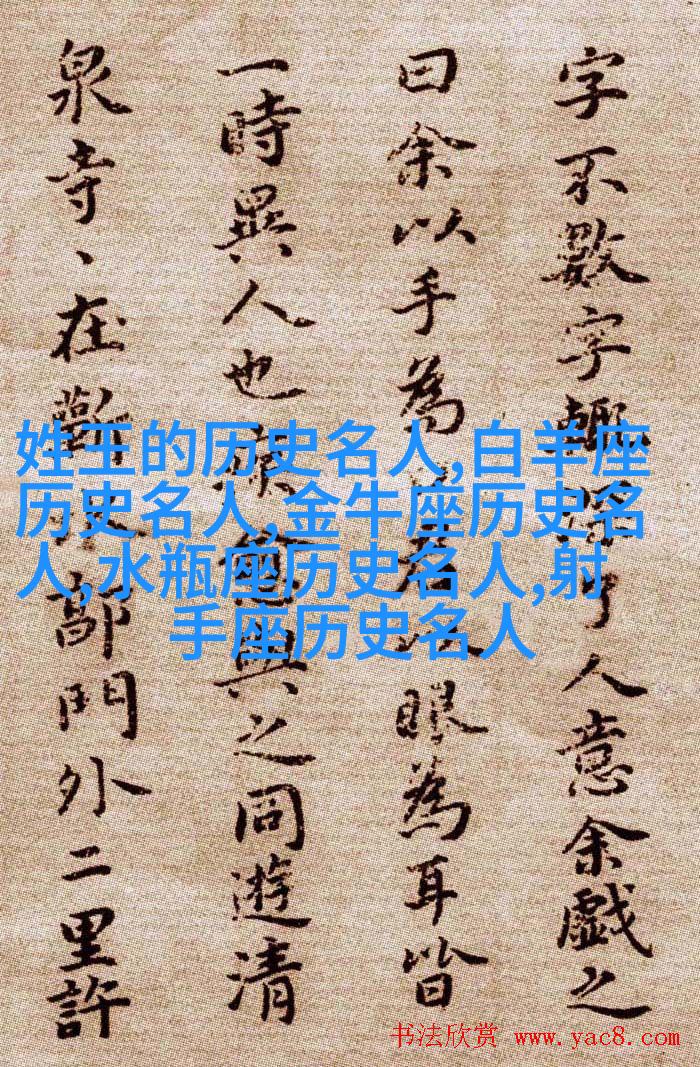 字不數字輒了人意余戲之
曰余以手為君以眼為耳皆
一時異人也疾愈與之同遊清
泉寺、在蘄水郭門外二里許
姓王的历史名人,白羊座
历史名人,金牛座历史名
人,水瓶座历史名人,射
手座历史名人
书法欣赏 www.yac8.com